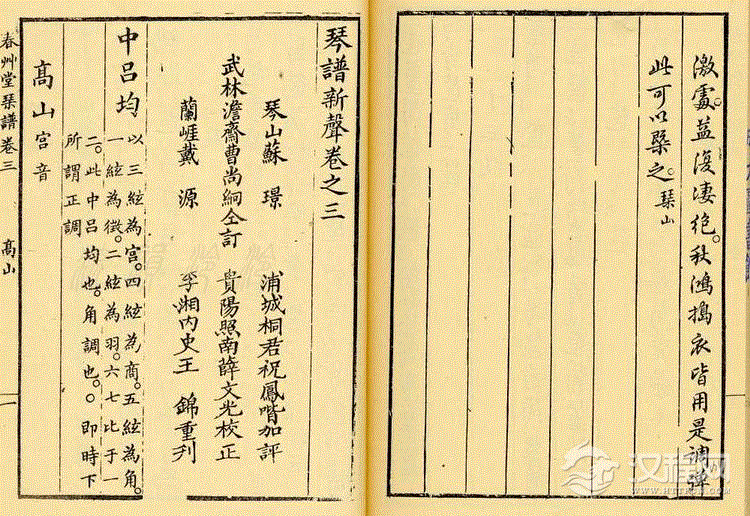 激處。益復凄絕。秋鴻搗衣皆用是調彈
此可以槩之。琹山
琴譜新聲卷之三
琴山蘇 璟 浦城桐君祝鳳喈加評
武林澹齋曹尚絅仝訂 貴陽照南薛文光校正
蘭崕戴 源 湘內史王 錦重刋
中呂均 以三絃為宮。四絃為商。五絃為角。
一絃為徵。二絃為羽。六七比于一
二。此中呂均也。角調也。即時下
所謂正調
髙山宮音
春艸堂琹譜卷三 髙山 一
汉程网